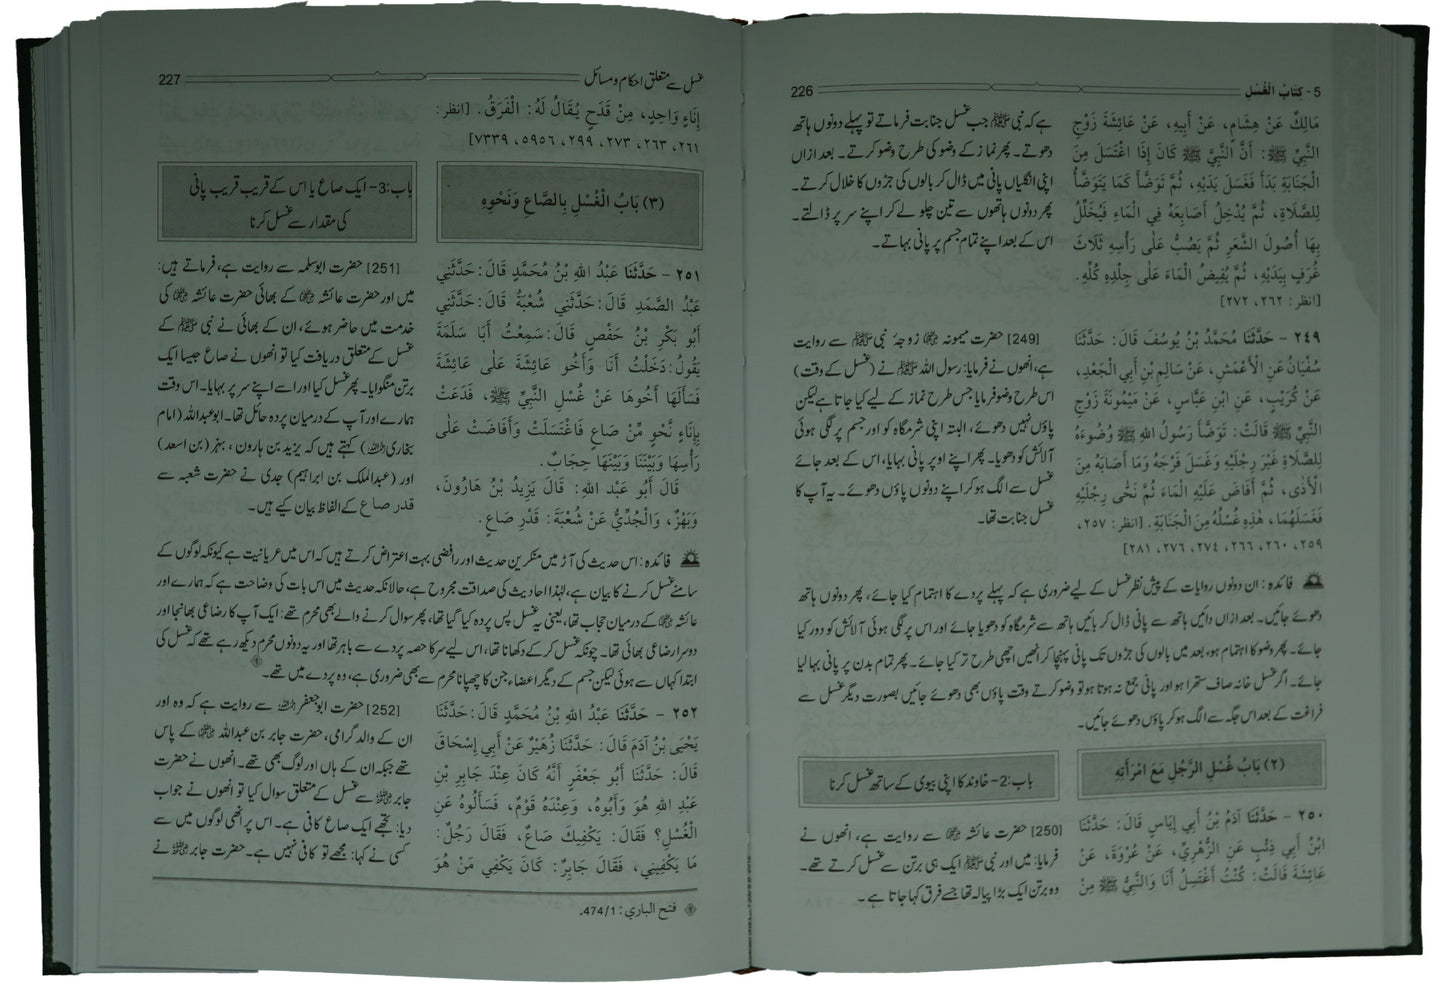 5 - كِتَابُ الْغُسْلِ 226
مَالِكٌ عَنْ هِشَامٍ، عَنْ أَبِيهِ، عَنْ عَائِشَةَ زَوْجِ
النَّبِيِّ ﷺ: أَنَّ النَّبِيَّ ﷺ كَانَ إِذَا اغْتَسَلَ مِنَ
الْجَنَابَةِ بَدَأَ فَغَسَلَ يَدَيْهِ، ثُمَّ تَوَضَّأَ كَمَا يَتَوَضَّأُ
لِلصَّلَاةِ، ثُمَّ يُدْخِلُ أَصَابِعَهُ فِي الْمَاءِ فَيُخَلِّلُ
بِهَا أُصُولَ الشَّعَرِ ثُمَّ يَصُبُّ عَلَى رَأْسِهِ ثَلَاثَ
غُرَفٍ بِيَدَيْهِ، ثُمَّ يُفِيضُ الْمَاءَ عَلَى جِلْدِهِ كُلِّهِ.
[انظر: ٢٦٢، ٢٧٢]
ہے کہ نبی ﷺ جب غسل جنابت فرماتے تو پہلے دونوں ہاتھ
دھوتے۔ پھر نماز کے وضو کی طرح وضو کرتے۔ بعد ازاں
اپنی انگلیاں پانی میں ڈال کر بالوں کی جڑوں کا خلال کرتے۔
پھر دونوں ہاتھوں سے تین چلو لے کر اپنے سر پر ڈالتے۔
اس کے بعد اپنے تمام جسم پر پانی بہاتے۔
٢٤٩ - حَدَّثَنَا مُحَمَّدُ بْنُ يُوسُفَ قَالَ: حَدَّثَنَا
سُفْيَانُ عَنِ الْأَعْمَشِ، عَنْ سَالِمِ بْنِ أَبِي الْجَعْدِ،
عَنْ كُرَيْبٍ، عَنِ ابْنِ عَبَّاسٍ، عَنْ مَيْمُونَةَ زَوْجِ
النَّبِيِّ ﷺ قَالَتْ: تَوَضَّأَ رَسُولُ اللهِ ﷺ وُضُوءَهُ
لِلصَّلَاةِ غَيْرَ رِجْلَيْهِ وَغَسَلَ فَرْجَهُ وَمَا أَصَابَهُ مِنَ
الْأَذَى، ثُمَّ أَفَاضَ عَلَيْهِ الْمَاءَ ثُمَّ نَحَّى رِجْلَيْهِ
فَغَسَلَهُمَا، هٰذِهِ غُسْلُهُ مِنَ الْجَنَابَةِ. [انظر: ٢٥٧،
٢٥٩، ٢٦٠، ٢٦٦، ٢٧٤، ٢٧٦، ٢٨١]
[249] حضرت میمونہ ؓ زوجۂ نبی ﷺ سے روایت
ہے، انھوں نے فرمایا: رسول اللہ ﷺ نے (غسل کے وقت)
اس طرح وضو فرمایا جس طرح نماز کے لیے کیا جاتا ہے لیکن
پاؤں نہیں دھوئے، البتہ اپنی شرمگاہ کو اور جسم پر لگی ہوئی
آلائش کو دھویا۔ پھر اپنے اوپر پانی بہایا، اس کے بعد جائے
غسل سے الگ ہو کر اپنے دونوں پاؤں دھوئے۔ یہ آپ کا
غسل جنابت تھا۔
فائدہ: ان دونوں روایات کے پیش نظر غسل کے لیے ضروری ہے کہ پہلے پردے کا اہتمام کیا جائے، پھر دونوں ہاتھ
دھوئے جائیں۔ بعد ازاں دائیں ہاتھ سے پانی ڈال کر بائیں ہاتھ سے شرمگاہ کو دھویا جائے اور اس پر لگی ہوئی آلائش کو دور کیا
جائے۔ پھر وضو کا اہتمام ہو، بعد میں بالوں کی جڑوں تک پانی پہنچا کر انھیں اچھی طرح تر کیا جائے۔ پھر تمام بدن پر پانی بہا لیا
جائے۔ اگر غسل خانہ صاف ستھرا ہو اور پانی جمع نہ ہوتا ہو تو وضو کرتے وقت پاؤں بھی دھوئے جائیں بصورت دیگر غسل سے
فراغت کے بعد اس جگہ سے الگ ہو کر پاؤں دھوئے جائیں۔
(٢) بَابُ غُسْلِ الرَّجُلِ مَعَ امْرَأَتِهِ
باب: 2- خاوند کا اپنی بیوی کے ساتھ غسل کرنا
٢٥٠ - حَدَّثَنَا آدَمُ بْنُ أَبِي إِيَاسٍ قَالَ: حَدَّثَنَا
ابْنُ أَبِي ذِئْبٍ عَنِ الزُّهْرِيِّ، عَنْ عُرْوَةَ، عَنْ
عَائِشَةَ قَالَتْ: كُنْتُ أَغْتَسِلُ أَنَا وَالنَّبِيُّ ﷺ مِنْ
[250] حضرت عائشہ ؓ سے روایت ہے، انھوں نے
فرمایا: میں اور نبی ﷺ ایک ہی برتن سے غسل کرتے تھے۔
وہ برتن ایک بڑا پیالہ تھا جسے فرق کہا جاتا ہے۔
غسل سے متعلق احکام و مسائل 227
إِنَاءٍ وَاحِدٍ، مِنْ قَدَحٍ يُقَالُ لَهُ: الْفَرَقُ. [انظر:
٢٦١، ٢٦٣، ٢٧٣، ٢٩٩، ٥٩٥٦، ٧٣٣٩]
(٣) بَابُ الْغُسْلِ بِالصَّاعِ وَنَحْوِهِ
باب: 3- ایک صاع یا اس کے قریب قریب پانی
کی مقدار سے غسل کرنا
٢٥١ - حَدَّثَنَا عَبْدُ اللهِ بْنُ مُحَمَّدٍ قَالَ: حَدَّثَنِي
عَبْدُ الصَّمَدِ قَالَ: حَدَّثَنِي شُعْبَةُ قَالَ: حَدَّثَنِي
أَبُو بَكْرِ بْنُ حَفْصٍ قَالَ: سَمِعْتُ أَبَا سَلَمَةَ
يَقُولُ: دَخَلْتُ أَنَا وَأَخُو عَائِشَةَ عَلَى عَائِشَةَ
فَسَأَلَهَا أَخُوهَا عَنْ غُسْلِ النَّبِيِّ ﷺ، فَدَعَتْ
بِإِنَاءٍ نَحْوٍ مِّنْ صَاعٍ فَاغْتَسَلَتْ وَأَفَاضَتْ عَلَى
رَأْسِهَا وَبَيْنَنَا وَبَيْنَهَا حِجَابٌ.
قَالَ أَبُو عَبْدِ اللهِ: قَالَ يَزِيدُ بْنُ هَارُونَ،
وَبَهْزٌ، وَالْجُدِّيُّ عَنْ شُعْبَةَ: قَدْرِ صَاعٍ.
[251] حضرت ابوسلمہ سے روایت ہے، فرماتے ہیں:
میں اور حضرت عائشہ ؓ کے بھائی حضرت عائشہ ؓ کی
خدمت میں حاضر ہوئے، ان کے بھائی نے نبی ﷺ کے
غسل کے متعلق دریافت کیا تو انھوں نے صاع جیسا ایک
برتن منگوایا۔ پھر غسل کیا اور اسے اپنے سر پر بہایا۔ اس وقت
ہمارے اور آپ کے درمیان پردہ حائل تھا۔ ابوعبداللہ (امام
بخاری ؒ) کہتے ہیں کہ یزید بن ہارون، بہز (بن اسعد)
اور (عبدالملک بن ابراہیم) جدی نے حضرت شعبہ سے
قدر صاع کے الفاظ بیان کیے ہیں۔
فائدہ: اس حدیث کی آڑ میں منکرین حدیث اور رافضی بہت اعتراض کرتے ہیں کہ اس میں عریانیت ہے کیونکہ لوگوں کے
سامنے غسل کرنے کا بیان ہے، لہٰذا احادیث کی صداقت مجروح ہے، حالانکہ حدیث میں اس بات کی وضاحت ہے کہ ہمارے اور
عائشہ ؓ کے درمیان حجاب تھا، یعنی یہ غسل پس پردہ کیا گیا تھا، پھر سوال کرنے والے بھی محرم تھے: ایک آپ کا رضاعی بھانجا اور
دوسرا رضاعی بھائی تھا۔ چونکہ غسل کر کے دکھانا تھا، اس لیے سر کا حصہ پردے سے باہر تھا اور یہ دونوں محرم دیکھ رہے تھے کہ غسل کی
ابتدا کہاں سے ہوئی لیکن جسم کے دیگر اعضاء جن کا چھپانا محرم سے بھی ضروری ہے، وہ پردے میں تھے۔ ①
٢٥٢ - حَدَّثَنَا عَبْدُ اللهِ بْنُ مُحَمَّدٍ قَالَ: حَدَّثَنَا
يَحْيَى بْنُ آدَمَ قَالَ: حَدَّثَنَا زُهَيْرٌ عَنْ أَبِي إِسْحَاقَ
قَالَ: حَدَّثَنَا أَبُو جَعْفَرٍ أَنَّهُ كَانَ عِنْدَ جَابِرِ بْنِ
عَبْدِ اللهِ هُوَ وَأَبُوهُ، وَعِنْدَهُ قَوْمٌ، فَسَأَلُوهُ عَنِ
الْغُسْلِ؟ فَقَالَ: يَكْفِيكَ صَاعٌ، فَقَالَ رَجُلٌ:
مَا يَكْفِينِي، فَقَالَ جَابِرٌ: كَانَ يَكْفِي مَنْ هُوَ
[252] حضرت ابوجعفر ؒ سے روایت ہے کہ وہ اور
ان کے والد گرامی، حضرت جابر بن عبداللہ ؓ کے پاس
تھے جبکہ ان کے ہاں اور لوگ بھی تھے۔ انھوں نے حضرت
جابر ؓ سے غسل کے متعلق سوال کیا تو انھوں نے جواب
دیا: تجھے ایک صاع کافی ہے۔ اس پر انھی لوگوں میں سے
کسی نے کہا: مجھے تو کافی نہیں ہے۔ حضرت جابر ؓ نے
① فتح الباري: 474/1.